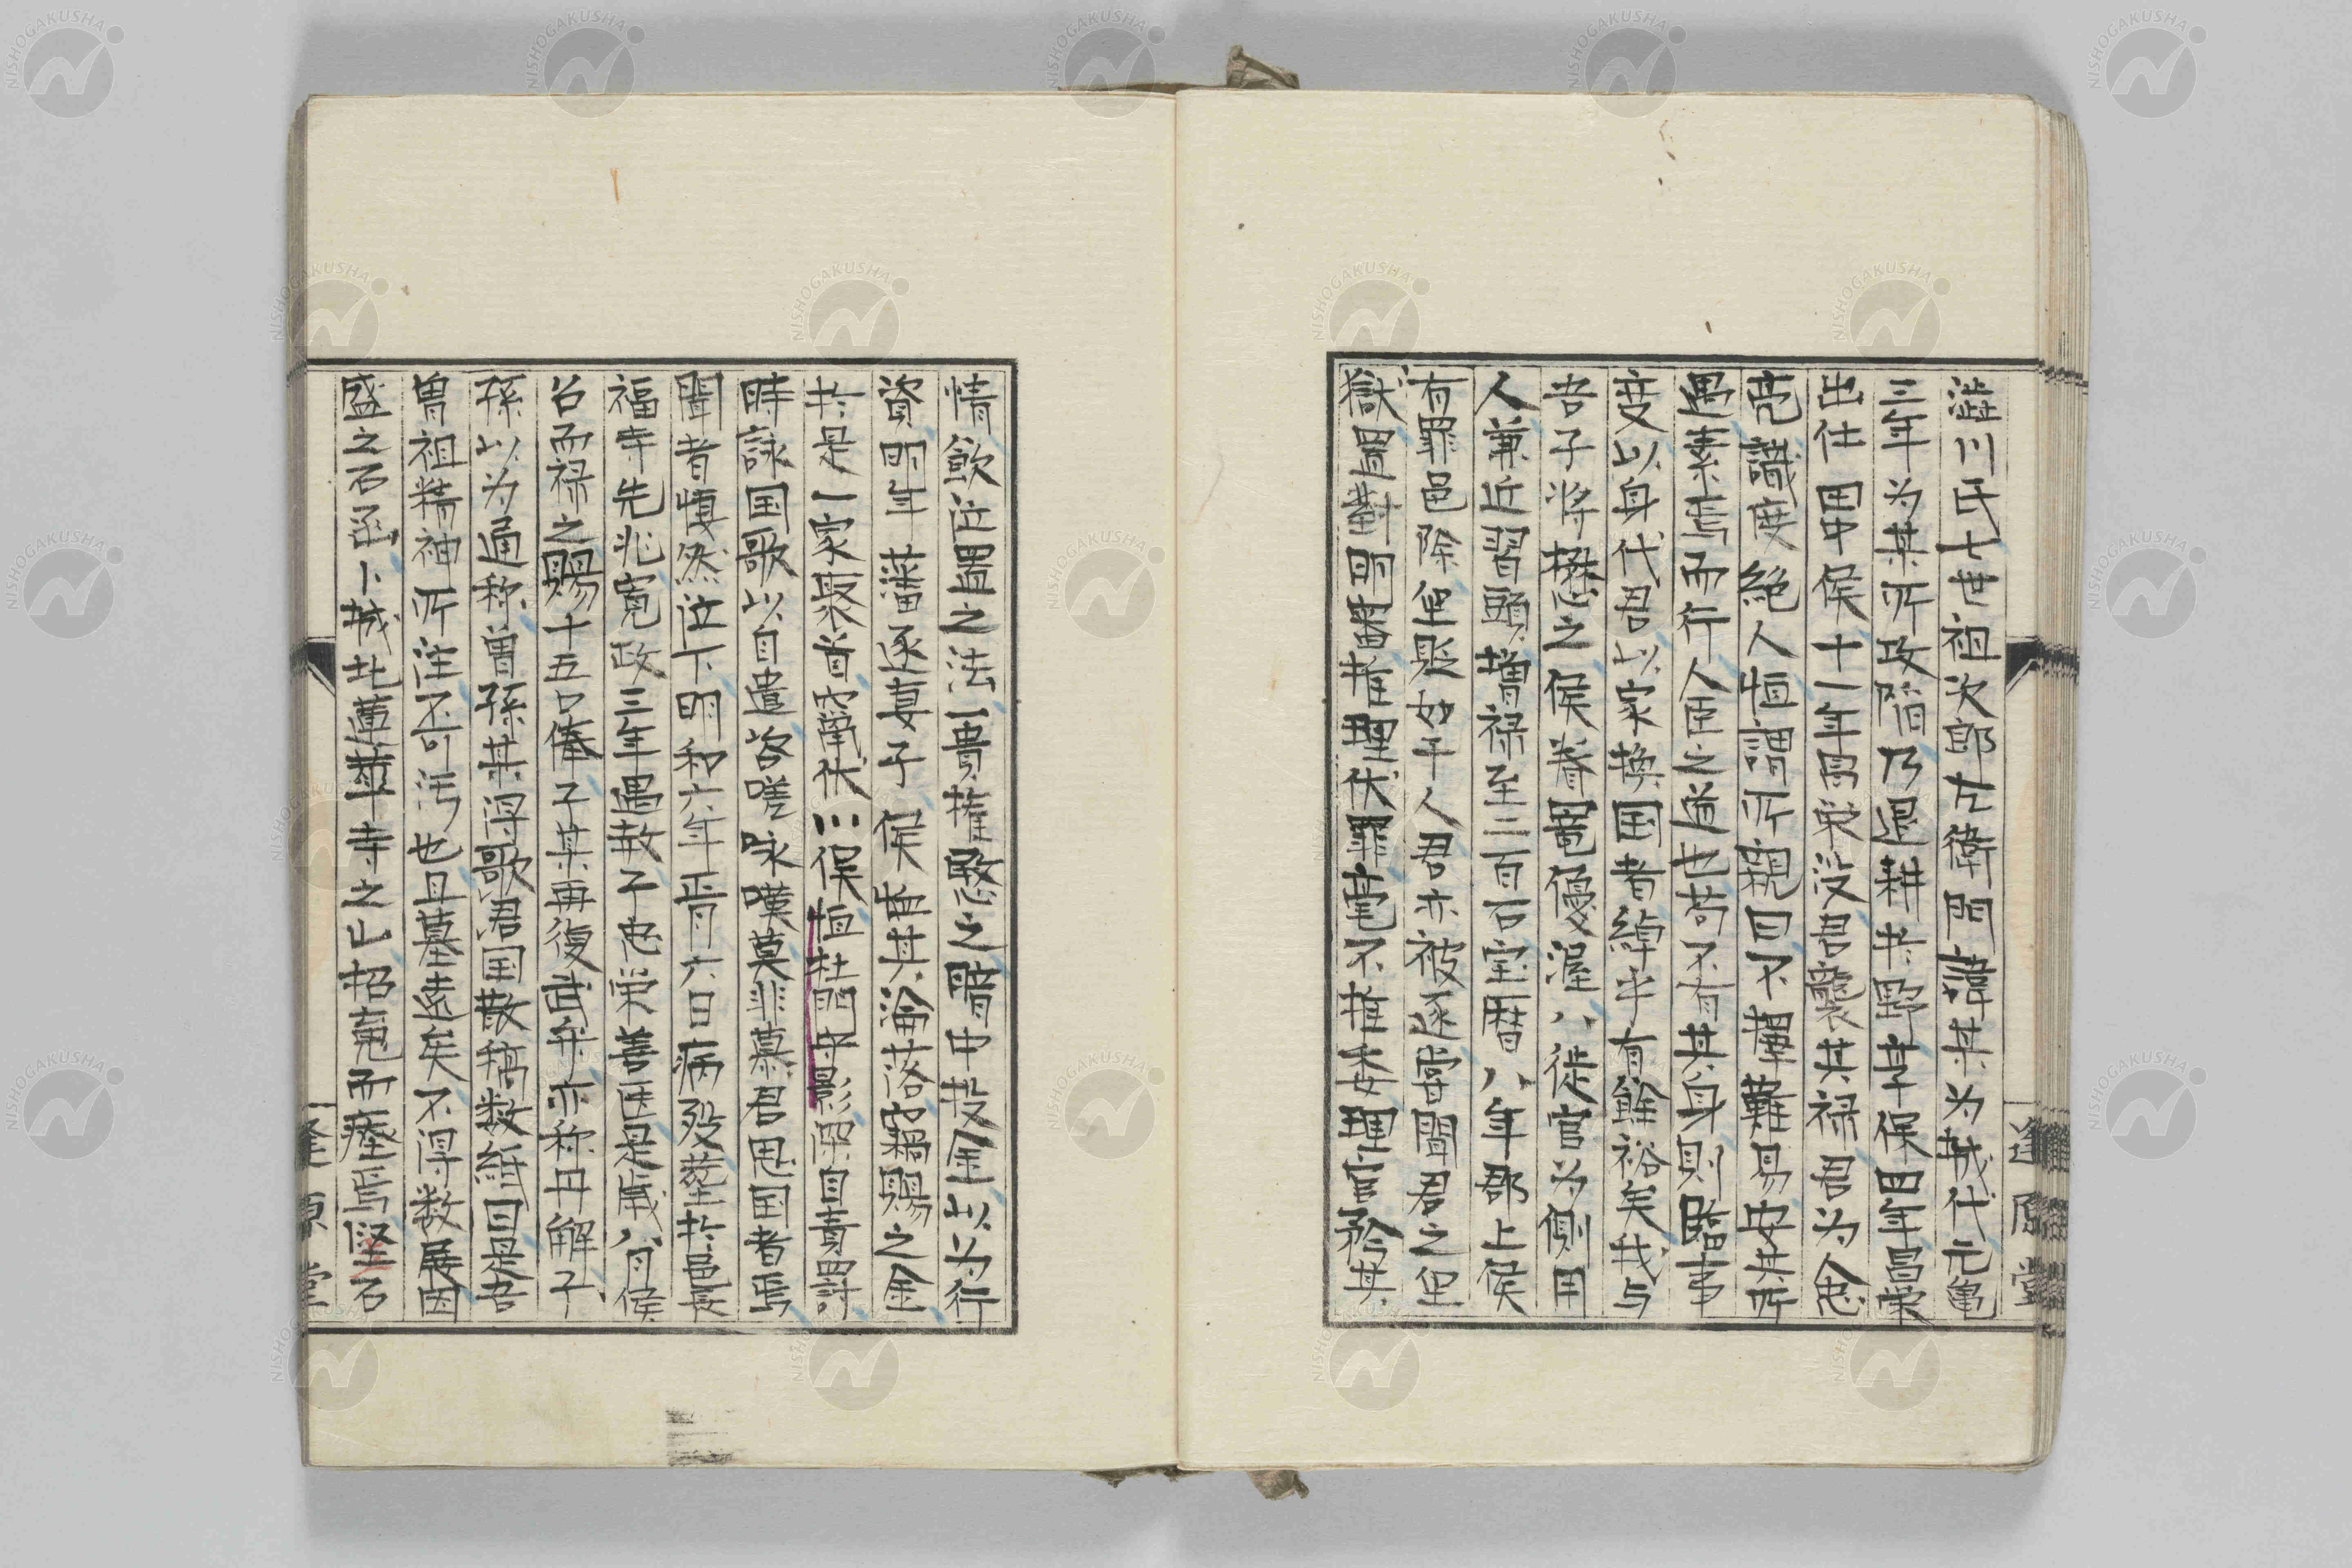 澁川氏七世祖次郎左衛門諱某為城代元亀
三年为某所攻陥乃退耕于野享保四年昌策
出仕田中侯十一年昌策没君襲其禄君为人忠
亮識度絶人恒謂所親曰不擇難易安其所
遇素焉而行人臣之道也苟不有其身則臨事
度以身代君以家換国者綽乎有餘裕矣我与
吾子将楙之侯眷寵優渥八徙官为側用
人兼近習頭増禄至二百石宝暦八年郡上侯
有罪邑除坐男女千人君亦被逐嘗聞君之坐
獄胃
情飲泣置之法一書
暗中投金以为行
資明年藩逐妻子侯
其淪落窃賜之金
於是一家聚首
伏川保恒杜門弔影深自責罰
時詠国歌以自遣咨嗟咏嘆莫非慕君思国者焉
聞者愴然泣下明和六年正月六日病歿葬於邑長
福寺先兆寛政三年遇赦子忠策善医是歳八月侯
召而禄之賜十五口俸子某再復武弁亦称丹解子
孫以为通称曽孫某得歌君国歌稿数紙曰是吾
曽祖精神所注不可汚也且墓遠矣不得数展因
盛之石函卜城北蓮華寺之山招魂而瘞焉堅石
逢原堂
NISHOGAKUSHA